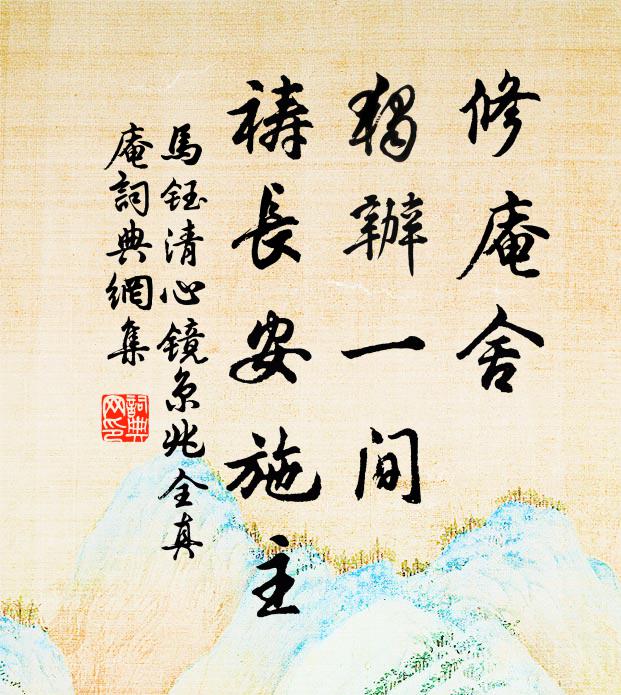 修庵舍
独辦一间
祷長安施主
馬钰清心镜京兆全真
庵詞典網集
詞典
网印